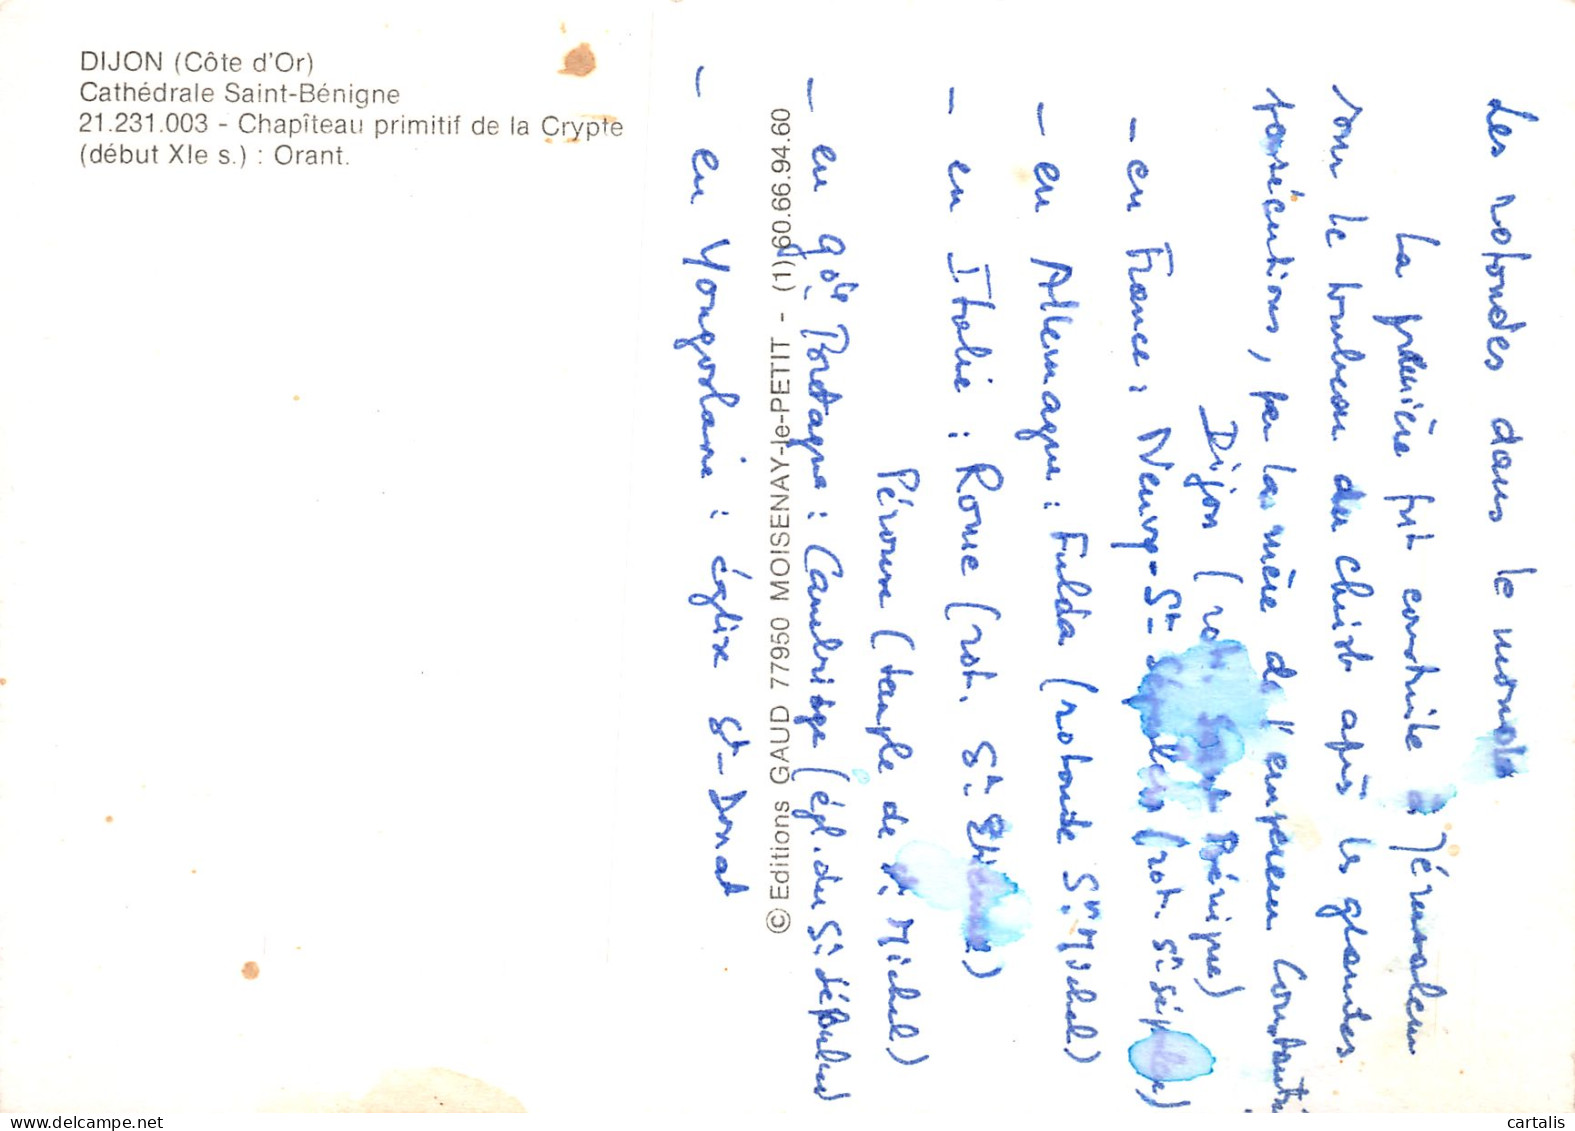 DIJON (Côte d'Or)
Cathédrale Saint-Bénigne
21.231.003 - Chapîteau primitif de la Crypte
(début XIe s.) : Orant.
© Editions GAUD 77950 MOISENAY-le-PETIT - (1) 60.66.94.60
Les rotondes dans le monde
La première fut construite à Jérusalem
sur le tombeau du Christ après les grandes
persécutions, par la mère de l'empereur Constantin
Dijon (rot. Saint Bénigne)
- en France : Neuvy-St- (rot. St sépulcre)
- en Allemagne : Fulda (rotonde St Michel)
- en Italie : Rome (rot. St Etienne)
Pérouse (temple de St Michel)
- en Gde Bretagne : Cambridge (égl. du St Sépulcre)
- en Yougoslavie : église St-Donat
cartalis